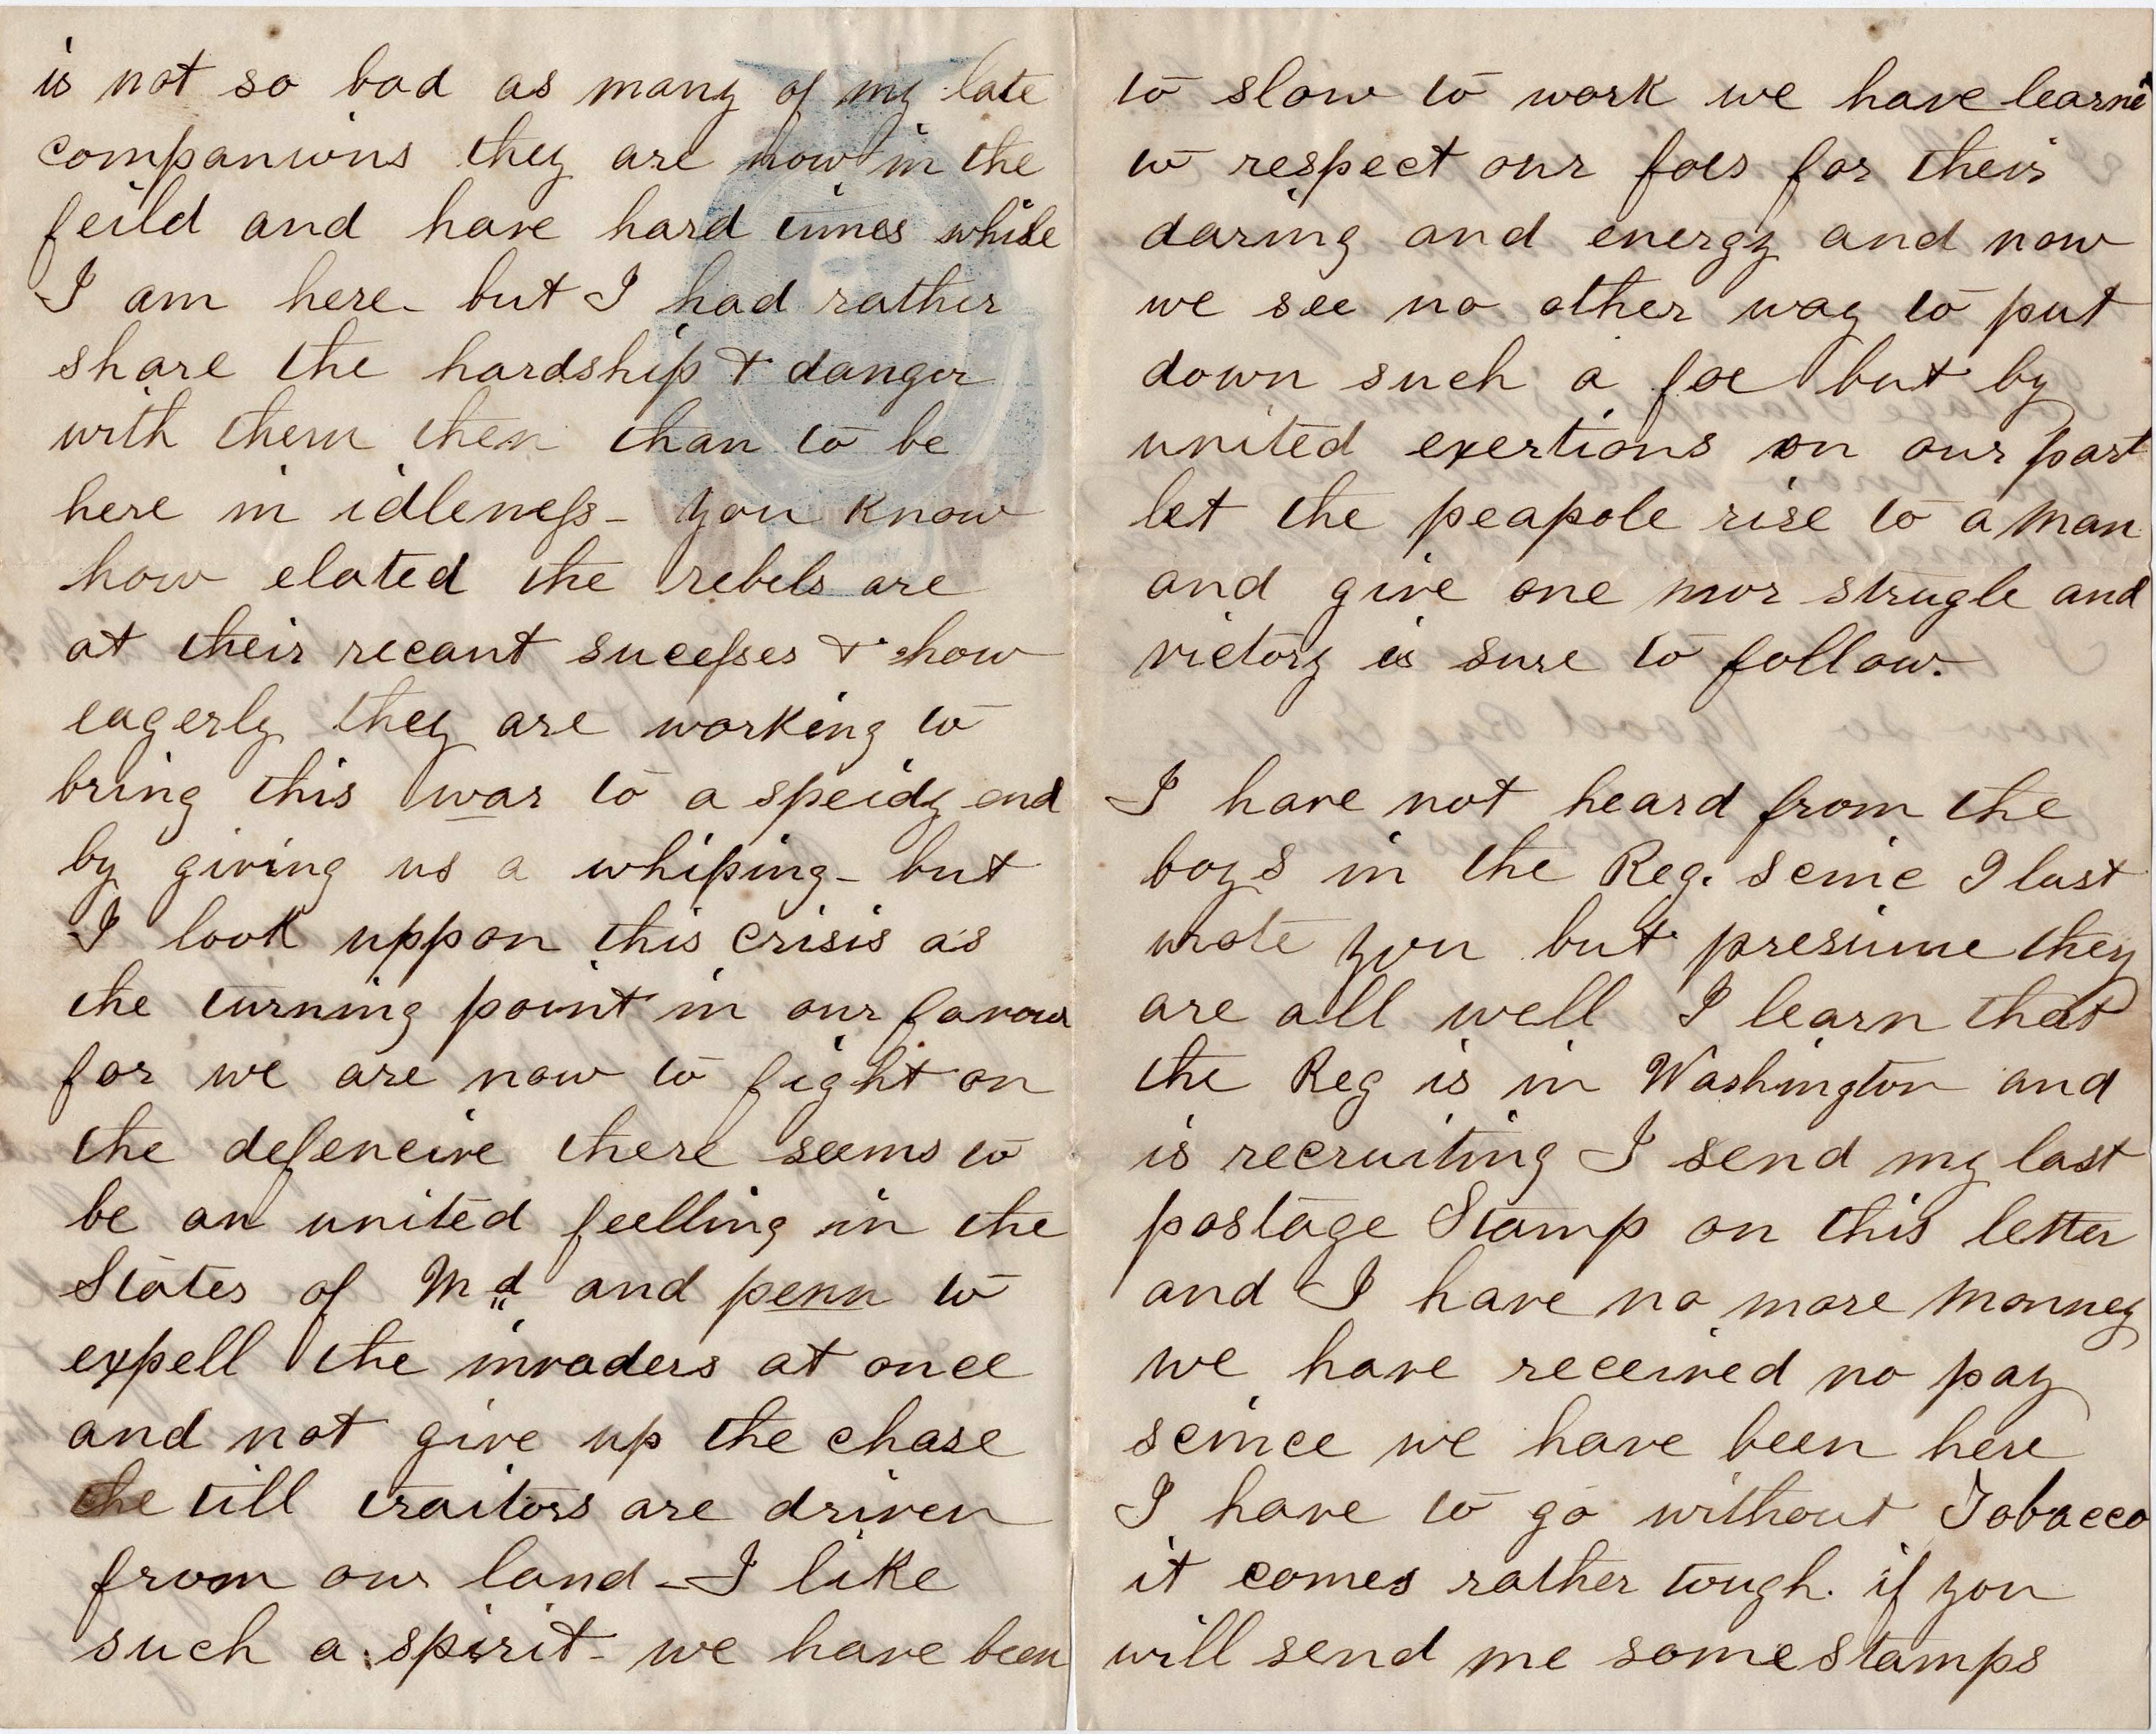 is not so bad as many of my late
companions they are now in the
feild and have hard times while
I am here - but I had rather
share the hardship & danger
with them then than to be
here in idleness - you know
how elated the rebels are
at their recant sucesses & how
eagerly they are working to
bring this war to a speidy end
by giving us a whiping - but
I look uppon this crisis as
the turning point in our favour
for we are now to fight on
the defencive there seems to
be an united feelling in the
States of Md and penn to
expell the invaders at once
and not give up the chase
the till traitors are driven
from our land - I like
such a spirit - we have been
to slow to work we have learnt
to respect our foes for their
daring and energy and now
we see no other way to put
down such a foe but by
united exertions on our part
let the peapole rise to a man
and give one mor strugle and
victory is sure to follow.
I have not heard from the
boys in the Reg. scinc I last
wrote you but presume they
are all well I learn that
the Reg is in Washington and
is recruiting I send my last
postage Stamp on this letter
and I have no more monney
we have received no pay
scince we have been here
I have to go without Tobacco
it comes rather tough. if you
will send me some stamps